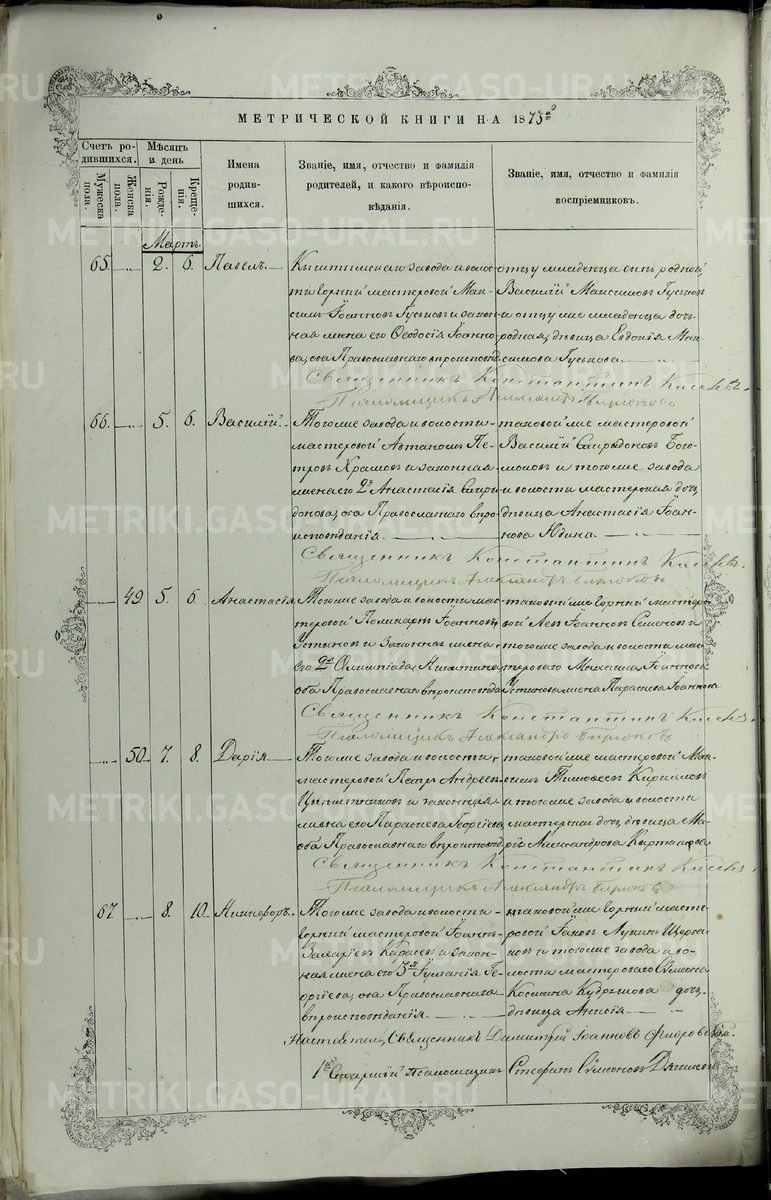 МЕТРИЧЕСКОЙ КНИГИ НА 1873й
Счетъ родившихся.
Мужеска пола.
Женска пола.
Мѣсяцъ и день
Рожденія.
Крещенія.
Имена родившихся.
Званіе, имя, отчество и фамилія родителей, и какого вѣроисповѣданія.
Званіе, имя, отчество и фамилія воспріемниковъ.
Мартъ.
65. 2. 6. Павелъ.
Кыштымскаго завода и волос-
ти горный мастеровой Мак-
симъ Іоанновъ Гуськовъ и закон-
ная жена его Ѳеодосія Іоанно-
ва, оба Православнаго вѣроисповѣд.
отцу младенца сынъ родной
Василій Максимовъ Гуськовъ
и отцу же младенца дочь
родная, дѣвица Евдокія Мак-
симова Гуськова.
Священникъ Константинъ
Псаломщикъ Александръ Бирюковъ
66. 5. 6. Василій.
Тогоже завода и волости
мастеровой Автаномъ Пе-
тровъ Храмовъ и законная
жена его 2я Анастасія Спири-
донова, оба Православнаго вѣро-
исповѣданія.
таковой же мастеровой
Василій Спиридоновъ Бого-
моловъ и тогоже завода
и волости мастерская дочь,
дѣвица Анастасія Іоан-
нова Юдина.
Священникъ Константинъ
Псаломщикъ Александръ Бирюковъ
49. 5. 6. Анастасія
Тогоже завода и волости мас-
теровой Поликарпъ Іоанновъ
Устиновъ и законная жена
его 2я Олимпіада Никитина
оба Православнаго вѣроисповѣда
таковой же горный мастеро-
вой Левъ Іоанновъ Семеновъ и
тогоже завода и волости мас-
тероваго Максима Іоаннова
Устинова жена Параскева Іоаннова
Священникъ Константинъ
Псаломщикъ Александръ Бирюковъ
50. 7. 8. Дарія
Тогоже завода и волости,
мастеровой Петръ Андреевъ
и законная
жена его Параскева Георгіева,
оба Православнаго вѣроисповѣд
таковой же мастеровой Мак-
симъ Тимоѳеевъ Кириловъ
и тогоже завода и волости
мастерская дочь, дѣвица Ма-
рія Александрова
Священникъ Константинъ
Псаломщикъ Александръ Бирюковъ
67. 8. 10. Никифоръ.
Тогоже завода и волости
горный мастеровой Іоаннъ
Захаріевъ Карасевъ и закон-
ная жена его 3я Іуліанія Ге-
оргіева, оба Православнаго
вѣроисповѣданія.
таковой же горный масте-
ровой Іаковъ Лукинъ
и тогоже завода и во-
лости мастероваго Сѵмеона
Космина Кудряшова дочь,
дѣвица Анисія
Настоятель, Священникъ Димитрій Іоанновъ
1й Старшій Псаломщикъ Стефанъ Сѵмеоновъ
METRIKI.GASO-URAL.RU